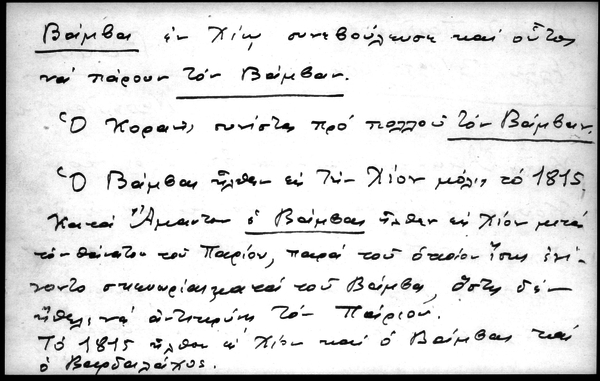 Βάμβας ἐν Χίῳ συνεβούλευσε καὶ οὗτος
νά πάρουν τόν Βάμβαν.
Ὁ Κοραῆς συνίστα πρό πολλοῦ τόν Βάμβαν.
Ὁ Βάμβας ἦλθεν εἰς τήν Χίον μόλις τό 1815,
Κατά Ἄμαντον ὁ Βάμβας ἦλθεν εἰς Χίον μετά
τόν θάνατον τοῦ Παρίου, παρά τοῦ ὁποίου ἴσως ἐγί-
νοντο κατά τοῦ Βάμβα, ὅστις δέν
ἤθελε νά ἀντικρύσῃ τόν Πάριον.
Τό 1815 ἦλθεν εἰς Χίον καί ὁ Βάμβας καί
ὁ Βαρδαλάχος.